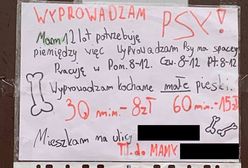 WYPROWADZAM PSY!
Mam 12 lat potrzebuje
pieniędzy więc wyprowadzam Psy na spacery
Pracuje w Pon. 8-12. Czw. 8-12 Pt. 8-12
Wyprowadzam kochane małe pieski.
30 min.- 8zł 60 min.- 15zł
Mieszkam na ulicy
Tl. do MAMY